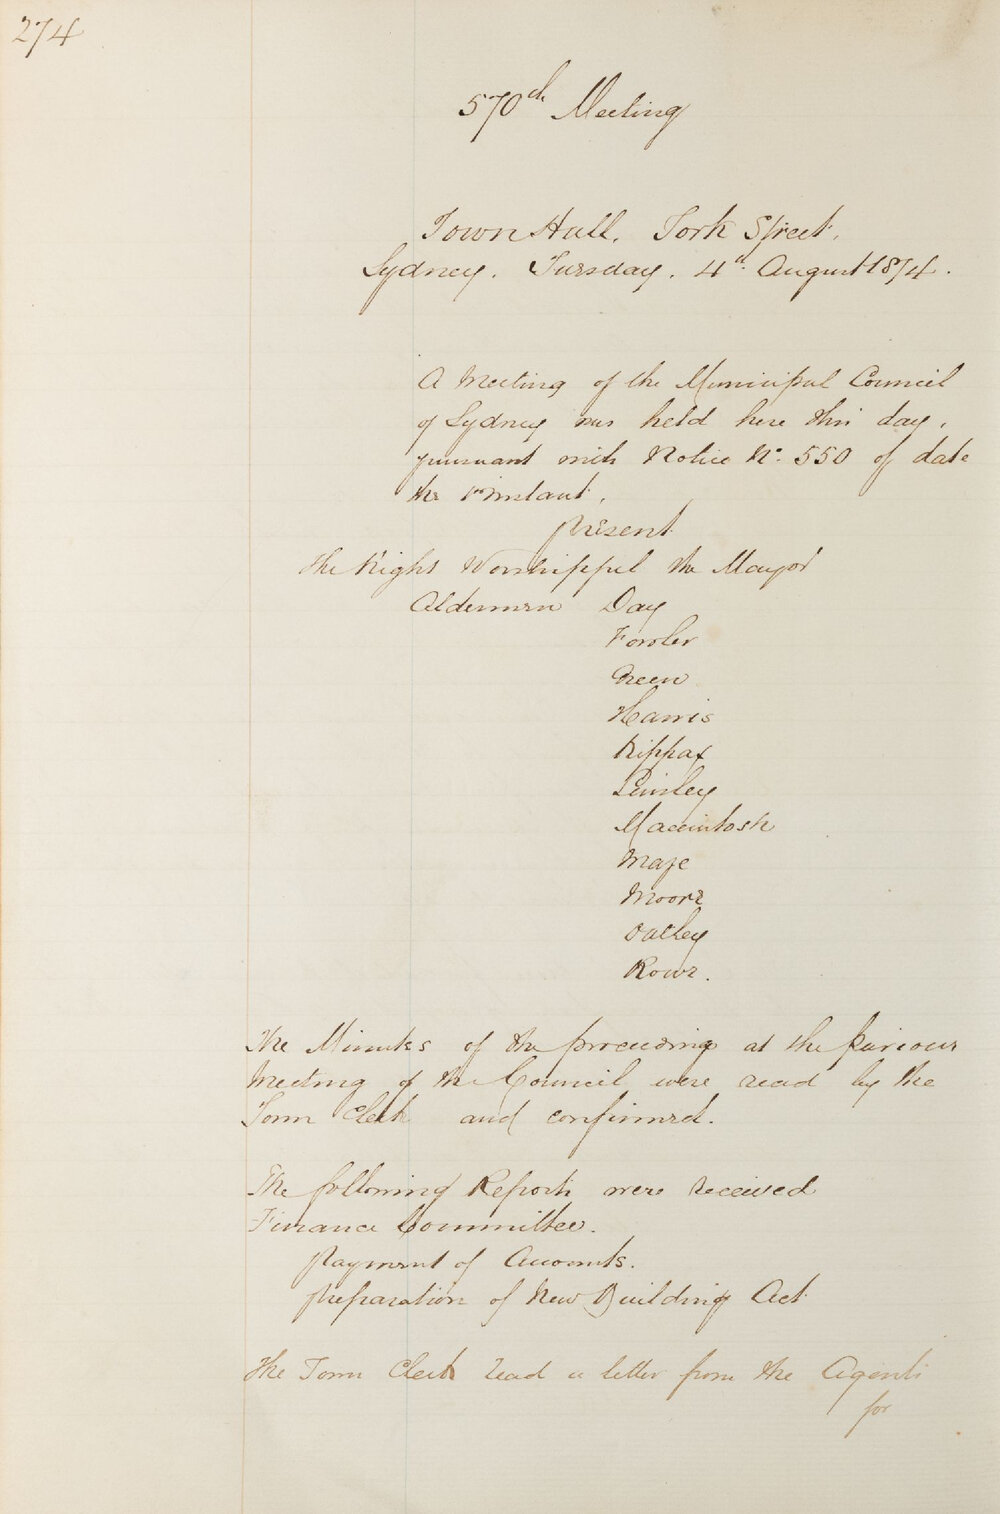 274
570th Meeting
Town Hall, York Street,
Sydney. Tuesday. 4th August 1874.
A Meeting of the Municipal Council
of Sydney was held here this day,
pursuant with Notice No. 550 of date
the 1st instant.
present
The Right Worshipful the Mayor
Aldermen Day
Fowler
Green
Harris
Kippax
Linsley
Macintosh
Maze
Moore
Oatley
Rowe.
The Minutes of the proceeding at the previous
Meeting of the Council were read by the
Town Clerk and confirmed.
The following Reports were received
Finance Committee.
Payment of Accounts.
preparation of New Building Act
The Town Clerk read a letter from the Agents
for